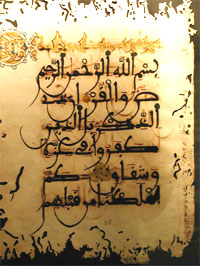 بسم الله الرحمن الرحيم
ص والقرآن ذي
الذكر بل الذين
كفروا في عزة
وشقاق كم
أهلكنا من قبلهم